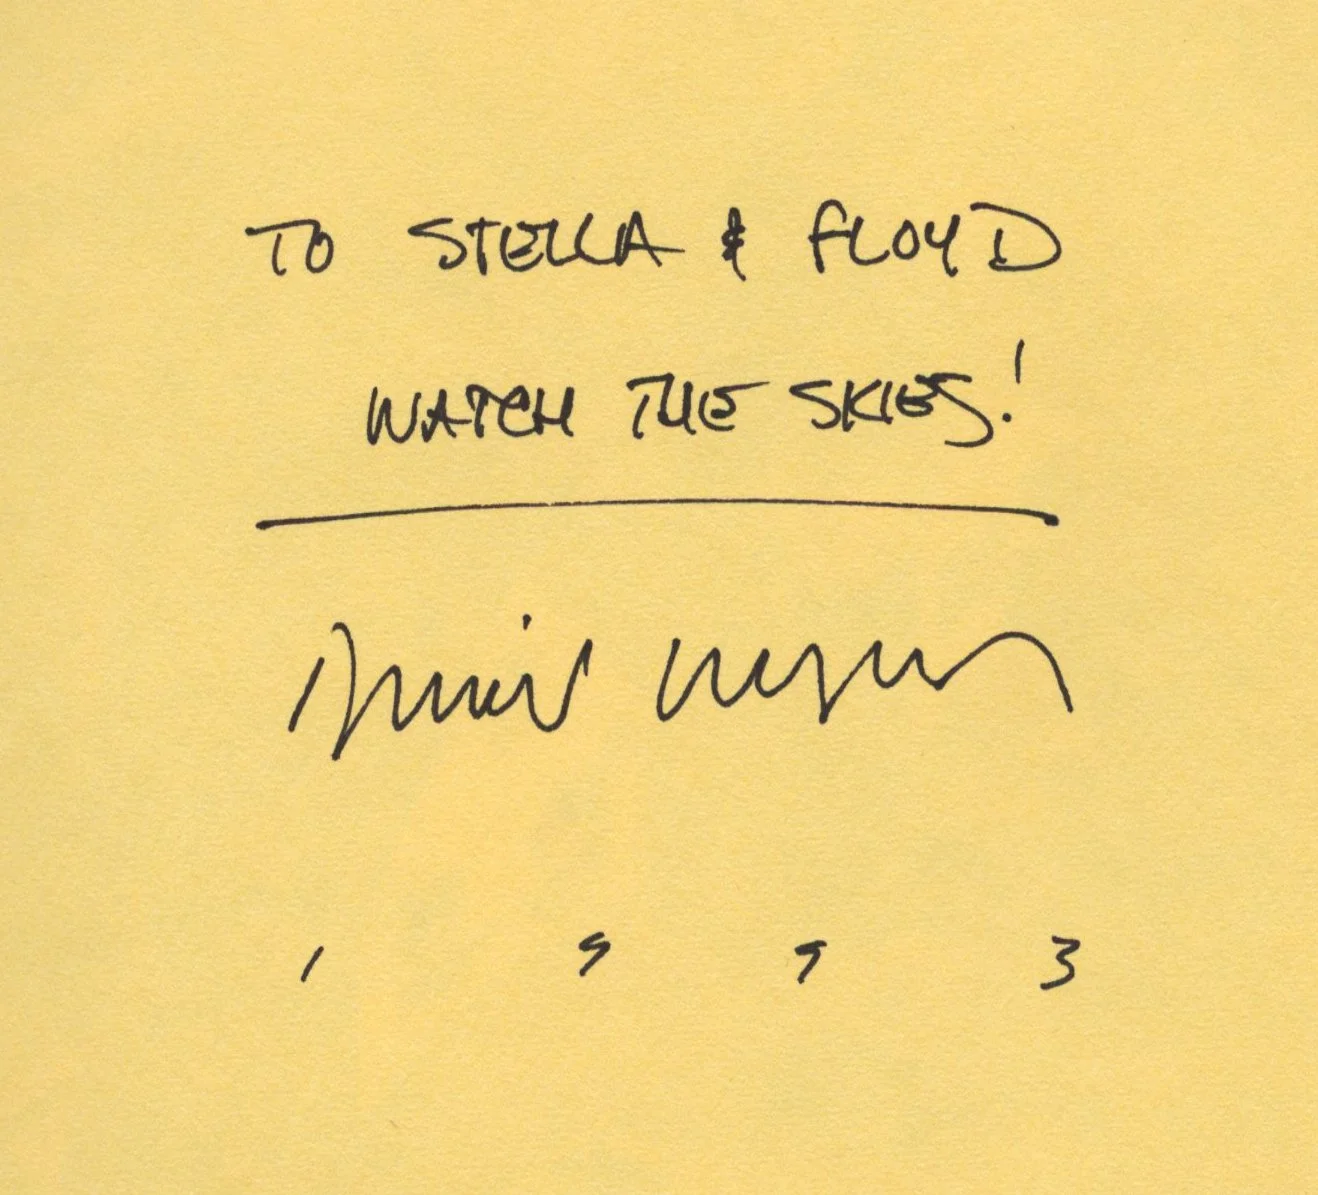 TO STELLA & FLOYD
WATCH THE SKIES!
1993